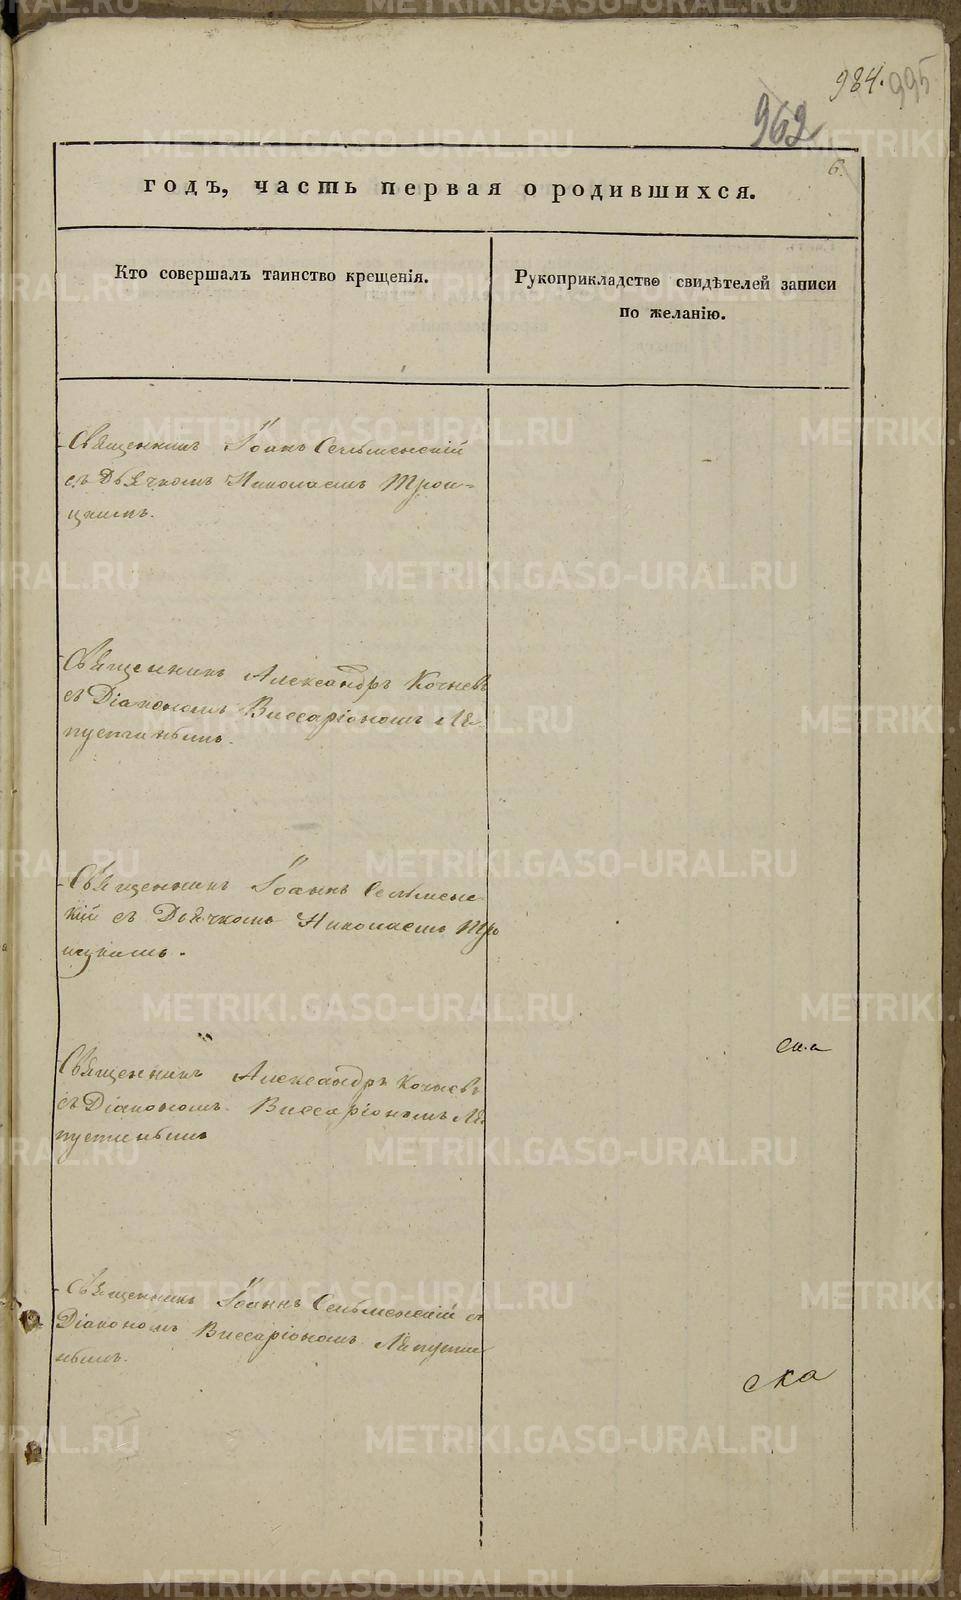 984. 995
962
6.
годъ, часть первая о родившихся.
Кто совершалъ таинство крещенія.
Рукоприкладство свидѣтелей записи
по желанію.
Священникъ Іоаннъ Сельменскій
съ Дьячкомъ Николаемъ Трои-
цкимъ.
Священникъ Александръ Кочневъ
съ Діакономъ Виссаріономъ Ля-
пустинымъ.
Священникъ Іоаннъ Сельменс-
кій съ Дьячкомъ Николаемъ Тро
ицкимъ.
Священникъ Александръ Кочневъ
съ Діакономъ Виссаріономъ Ля-
пустинымъ
Священникъ Іоаннъ Сельменскій съ
Діакономъ Виссаріономъ Ляпусти
нымъ.
ска
METRIKI.GASO-URAL.RU